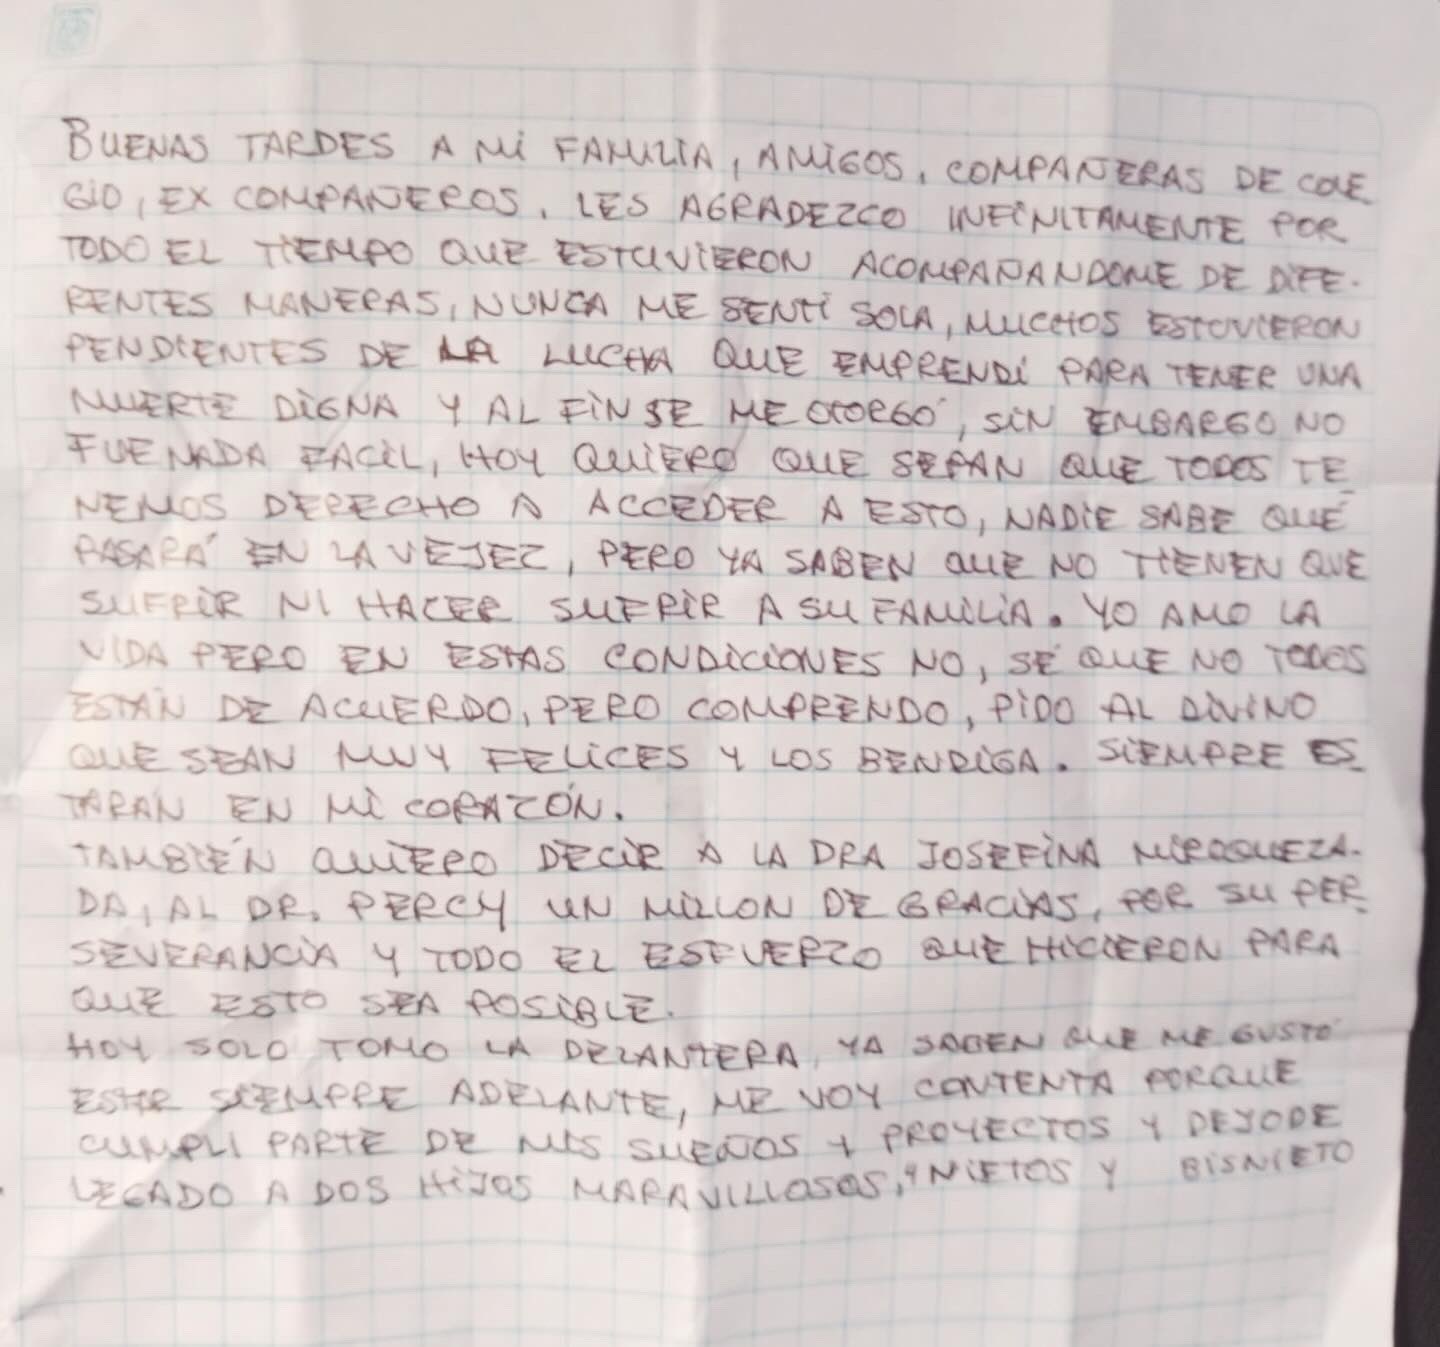 BUENAS TARDES A MI FAMILIA, AMIGOS, COMPAÑERAS DE COLE
GIO, EX COMPAÑEROS, LES AGRADEZCO INFINITAMENTE POR
TODO EL TIEMPO QUE ESTUVIERON ACOMPAÑANDOME DE DIFE-
RENTES MANERAS, NUNCA ME SENTÍ SOLA, MUCHOS ESTUVIERON
PENDIENTES DE LA LUCHA QUE EMPRENDÍ PARA TENER UNA
MUERTE DIGNA Y AL FIN SE ME OTORGÓ, SIN EMBARGO NO
FUE NADA FACIL, HOY QUIERO QUE SEPAN QUE TODOS TE
NEMOS DERECHO A ACCEDER A ESTO, NADIE SABE QUÉ
PASARÁ EN LA VEJEZ, PERO YA SABEN QUE NO TIENEN QUE
SUFRIR NI HACER SUFRIR A SU FAMILIA. YO AMO LA
VIDA PERO EN ESTAS CONDICIONES NO, SÉ QUE NO TODOS
ESTÁN DE ACUERDO, PERO COMPRENDO, PIDO AL DIVINO
QUE SEAN MUY FELICES Y LOS BENDIGA. SIEMPRE ES_
TARÁN EN MI CORAZÓN.
TAMBIÉN QUIERO DECIR A LA DRA JOSEFINA MIROQUEZA-
DA, AL DR. PERCY UN MILLON DE GRACIAS, POR SU PER_
SEVERANCIA Y TODO EL ESFUERZO QUE HICIERON PARA
QUE ESTO SEA POSIBLE.
HOY SOLO TOMO LA DELANTERA, YA SABEN QUE ME GUSTÓ
ESTAR SIEMPRE ADELANTE, ME VOY CONTENTA PORQUE
CUMPLI PARTE DE MIS SUEÑOS Y PROYECTOS Y DEJO DE
LEGADO A DOS HIJOS MARAVILLOSOS, NIETOS Y BISNIETO